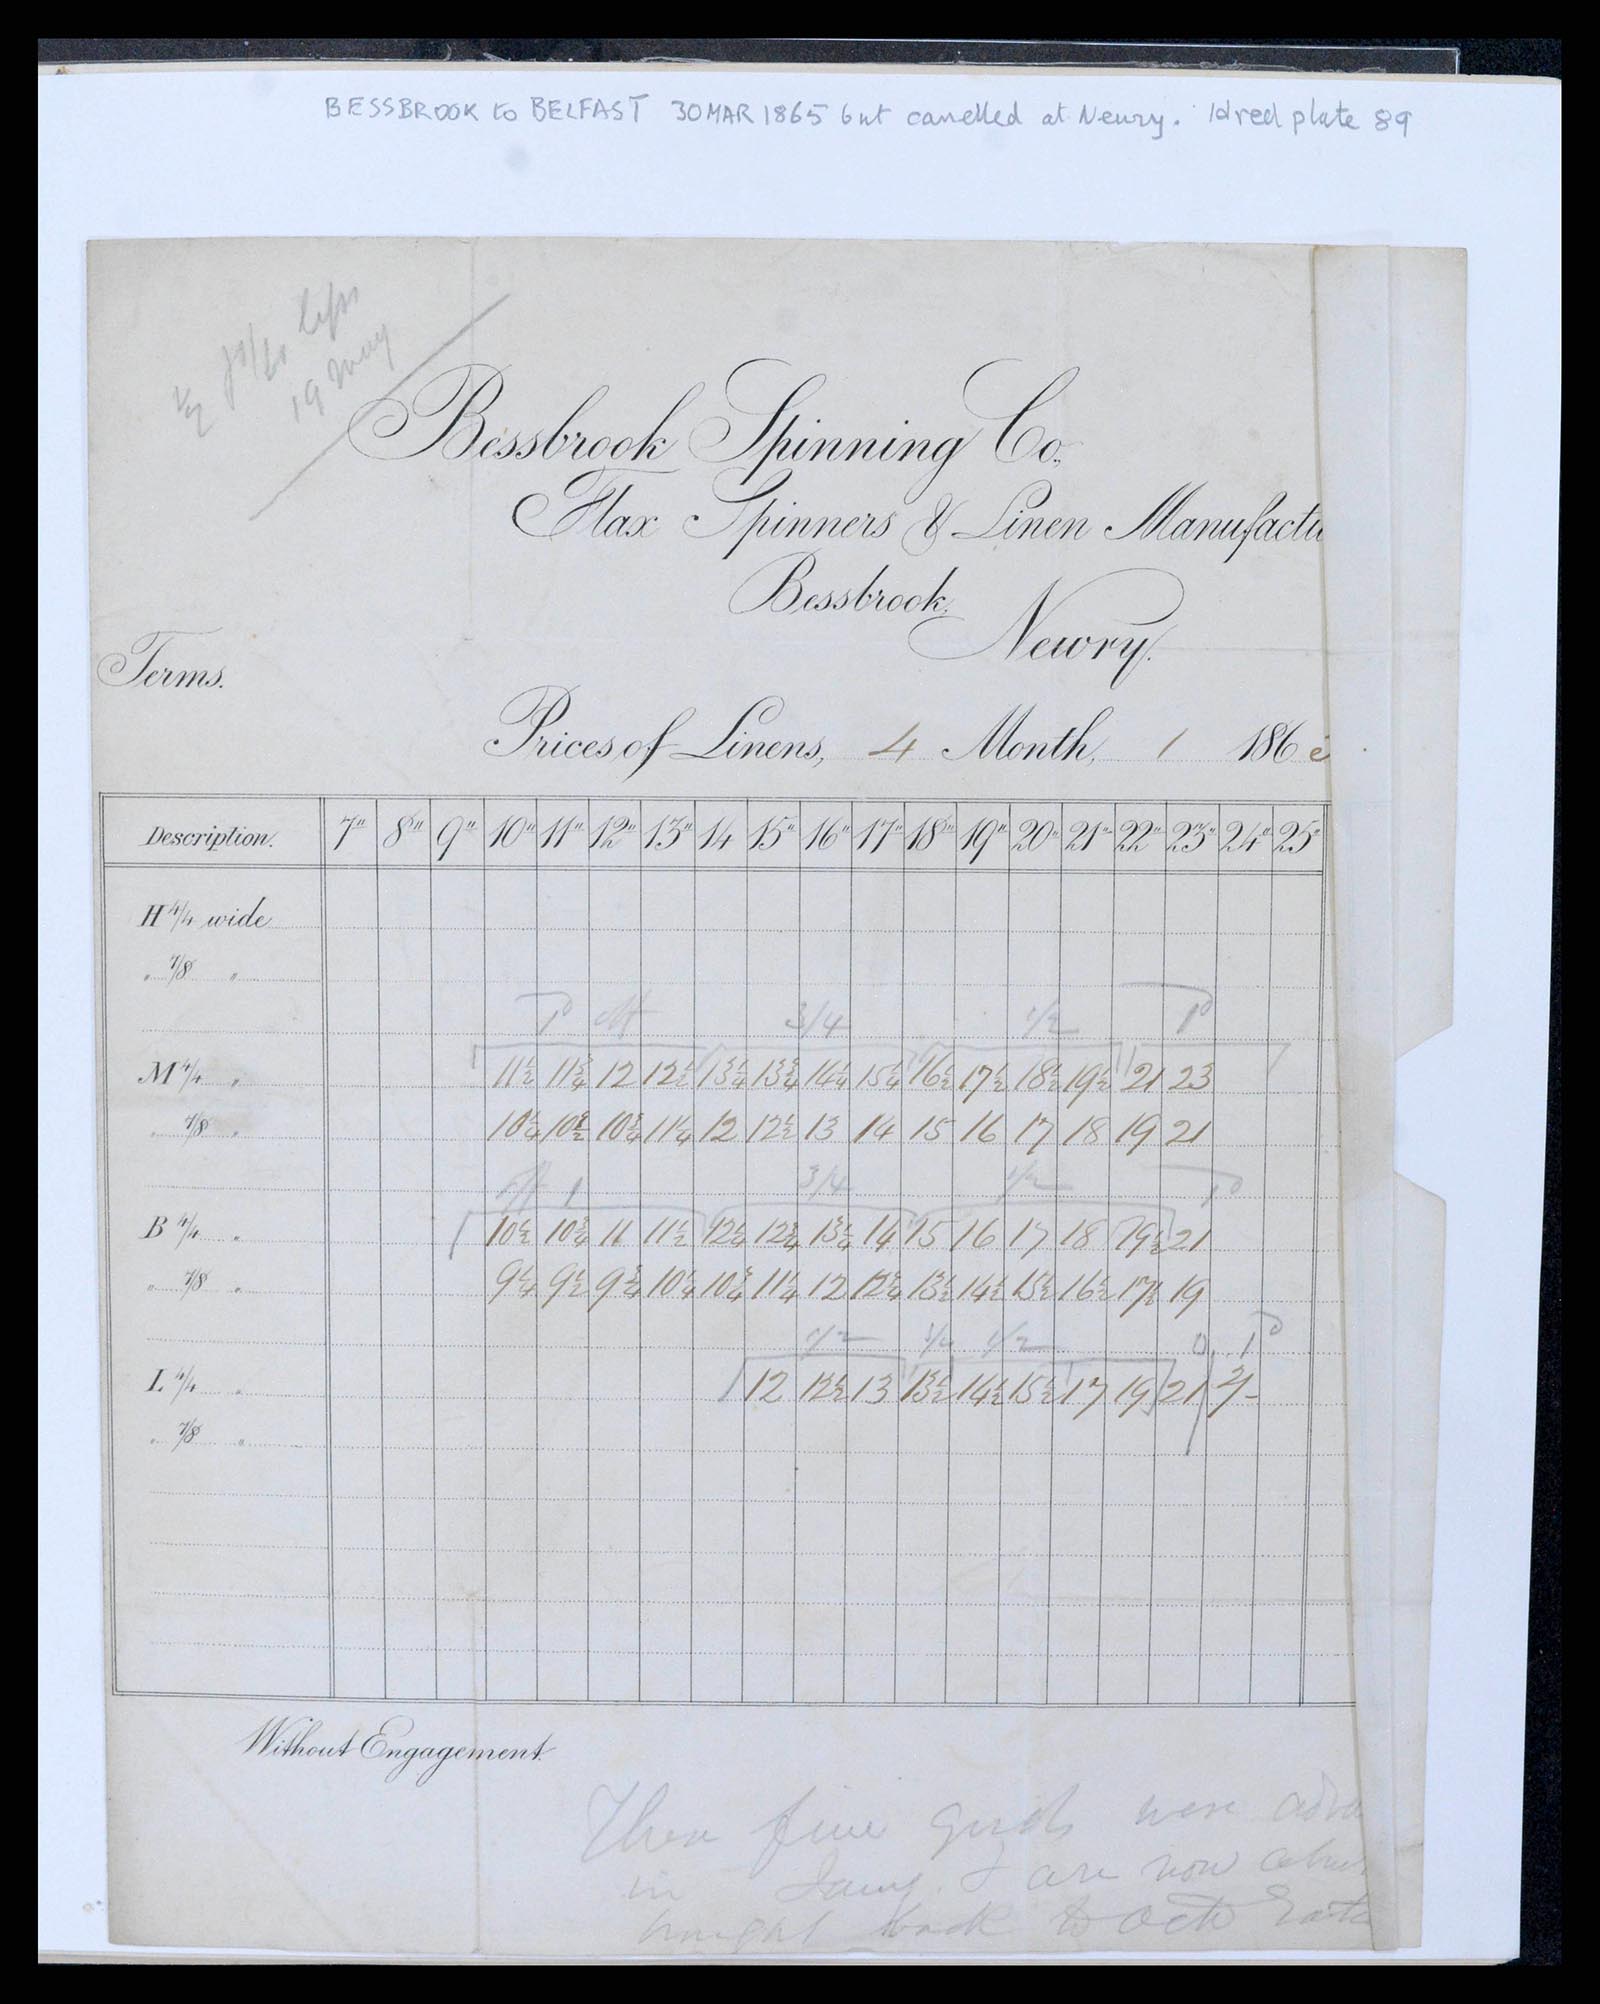 BESSBROOK to BELFAST 30 MAR 1865 but cancelled at Newry. 1d red plate 89
½
19 May
Bessbrook Spinning Co.,
Flax Spinners & Linen Manufactu
Bessbrook,
Newry.
Terms.
Prices of Linens, 4 Month, 1 186
Description. 7" 8" 9" 10" 11" 12" 13" 14 15" 16" 17" 18" 19" 20" 21" 22" 23" 24" 25"
H 4/4 wide
" 7/8 "
1d off 3/4 1/2 1d
M 4/4 " 11½ 11¾ 12 12½ 13¼ 13¾ 14¼ 15¼ 16½ 17½ 18½ 19½ 21 23
" 7/8 " 10¼ 10½ 10¾ 11¼ 12 12½ 13 14 15 16 17 18 19 21
off 1 3/4 1/2 1d
B 4/4 " 10½ 10¾ 11 11½ 12¼ 12¾ 13¼ 14 15 16 17 18 19½ 21
" 7/8 " 9¼ 9½ 9¾ 10¼ 10¾ 11¼ 12 12¾ 13½ 14½ 15½ 16½ 17½ 19
1/2 1/4 1/2 1d
L 4/4 " 12 12½ 13 13½ 14½ 15½ 17 19 21 2/-
" 7/8 "
Without Engagement.
fine goods were adva
in & are now
back to Octo